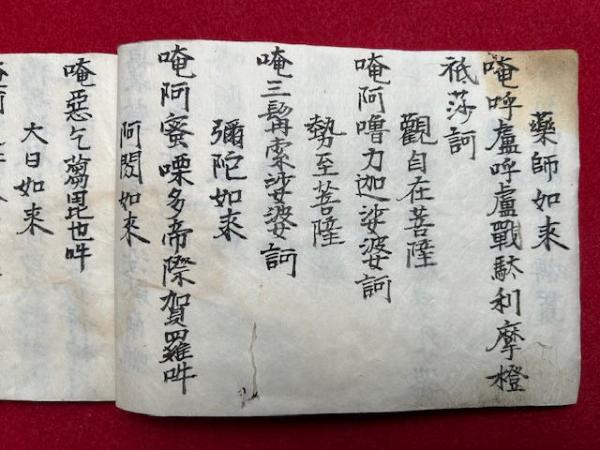 藥師如來
唵呼盧呼盧戰馱利摩橙
祇莎訶
觀自在菩薩
唵阿嚕力迦娑婆訶
勢至菩薩
唵三髯索娑婆訶
彌陀如來
唵阿蜜㗚多帝際賀羅吽
阿閦如來
唵惡乞蒭毘也吽
大日如來